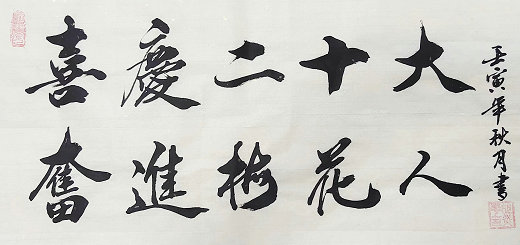 喜慶二十大
奮進梅花人
壬寅年秋月書